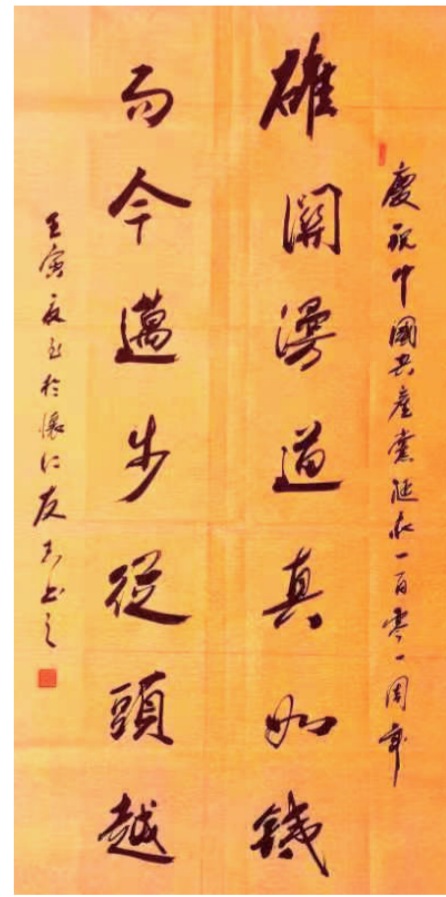 慶祝中國共產黨誕辰一百零一周年
雄關漫道真如鐵
而今邁步從頭越
壬寅夏至於懷仁友书之